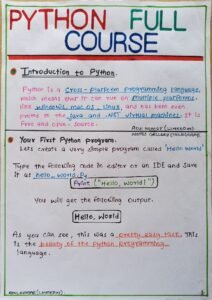 PYTHON FULL
COURSE
Introduction to Python.
Python is a cross-platform programming language,
which means that it can run on multiple platforms
like windows, mac os, Linux, and has been even
ported to the Java and .NET virtual machines. It is
free and open-source.
Your First Python program.
Lets create a very simple program called 'Hello World'
Type the following code in editor or an IDE and save
it as hello_world.py
Print ("Hello, World!")
You will get the following output.
Hello, World
As you can see, this was a pretty easy task. This
is the beauty of the python programming
language.